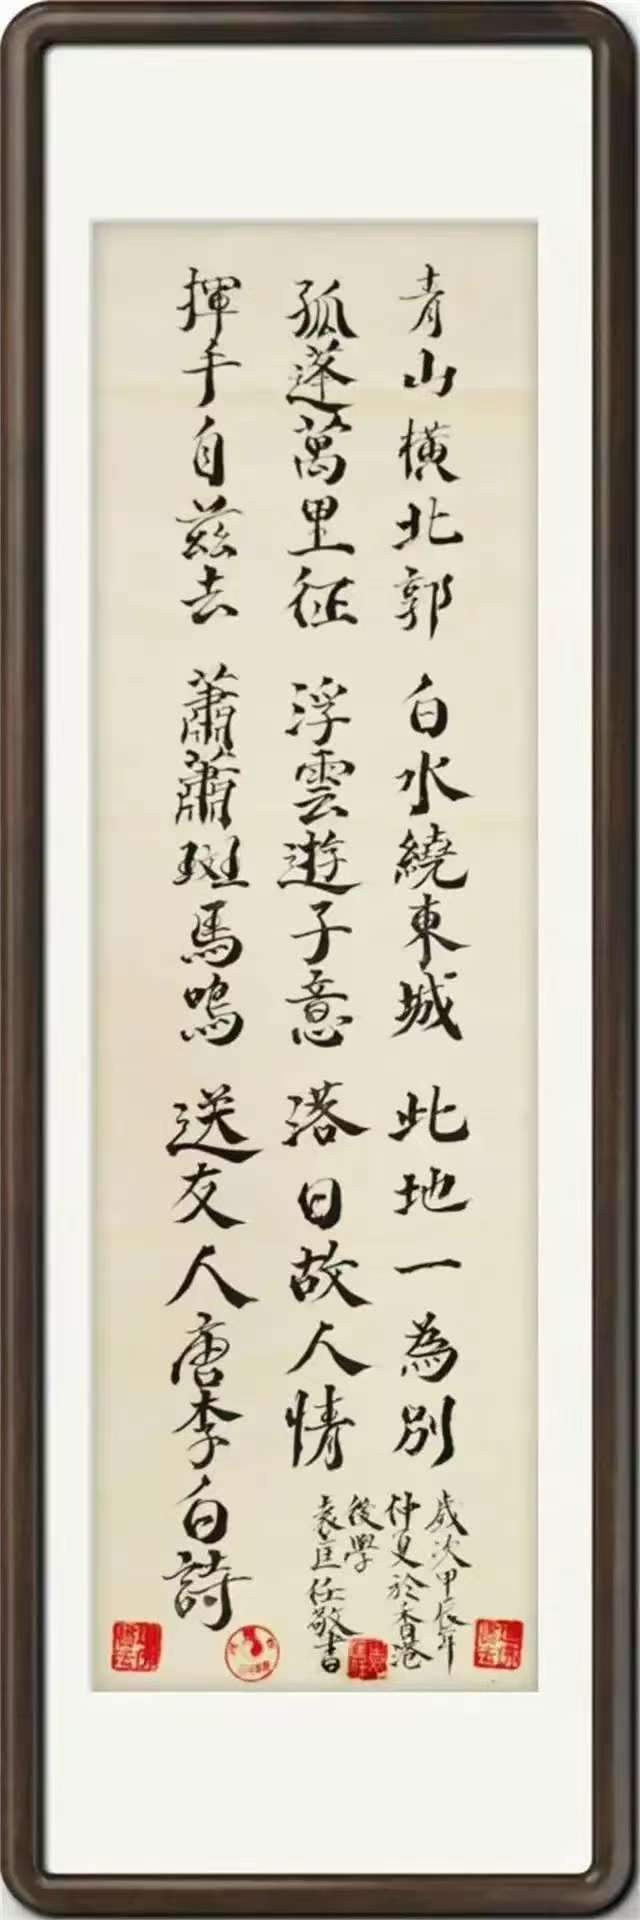 青山橫北郭 白水繞東城 此地一為別
孤蓬萬里征 浮雲遊子意 落日故人情
揮手自茲去 蕭蕭斑馬鳴 送友人唐李白詩
歲次甲辰年
仲夏於香港
後學
袁匡任敬書